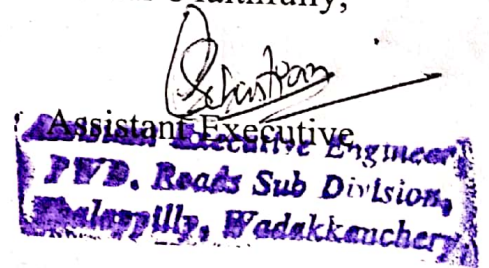 faithfully,
Assistant Executive
Assistant Executive Engineer
PWD. Roads Sub Division,
Thalappilly, Wadakkanchery